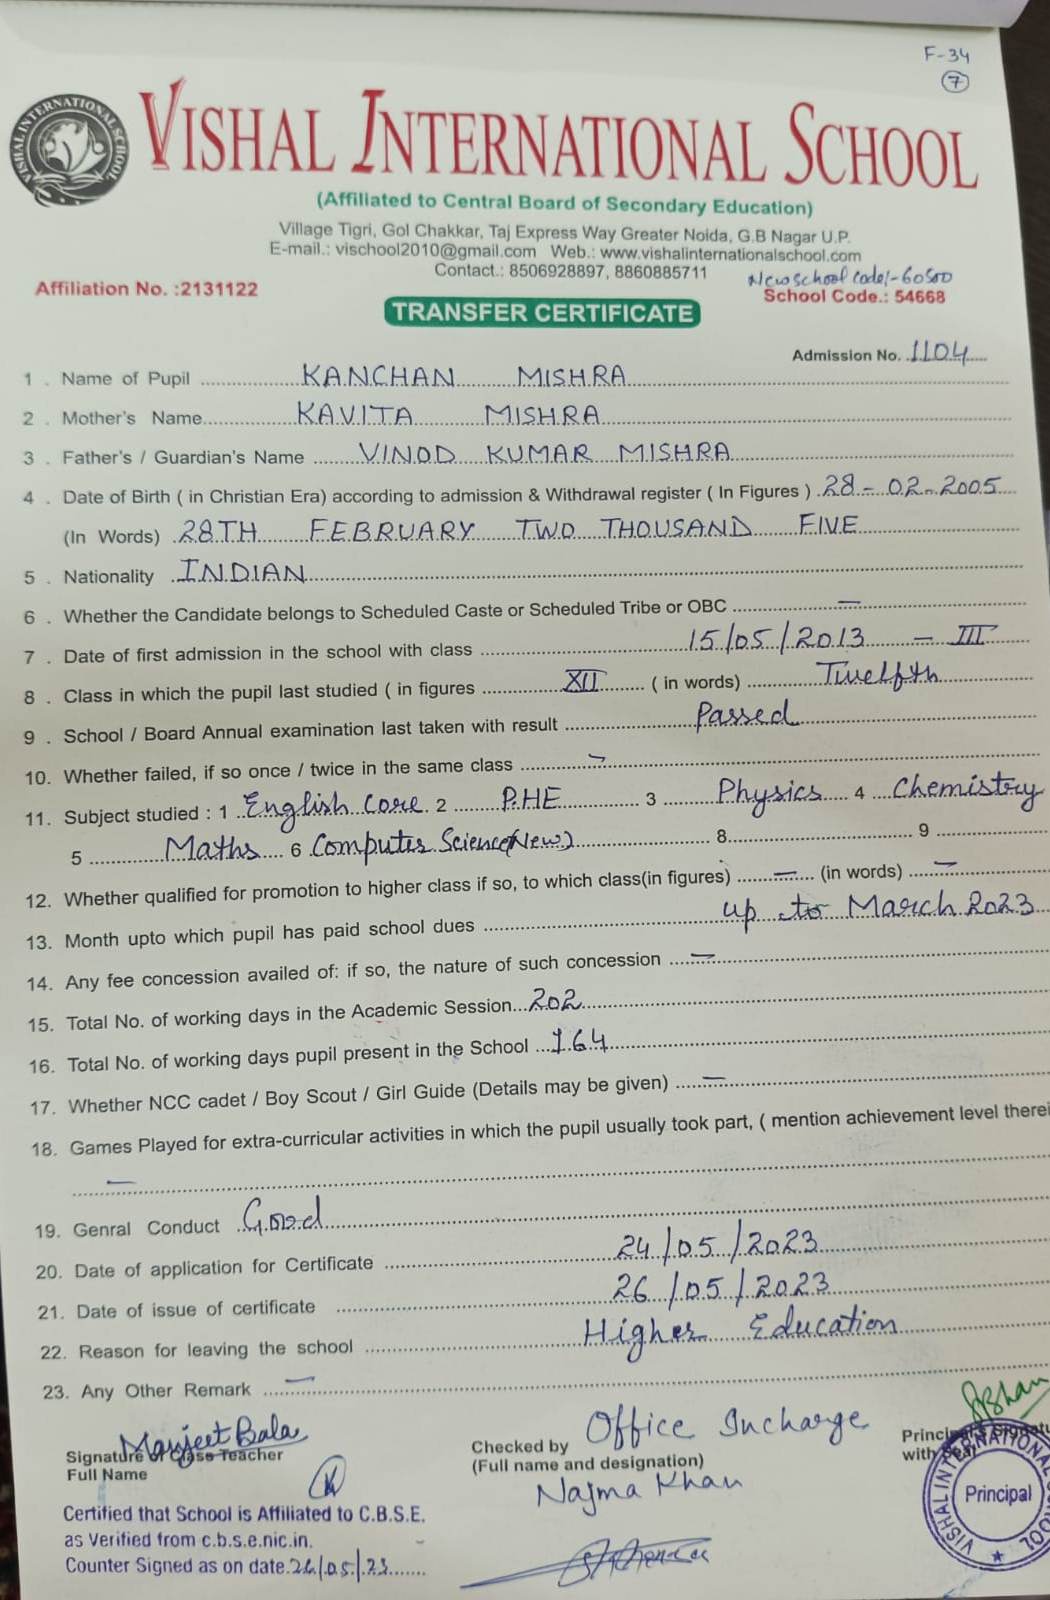 F-34
7
VISHAL INTERNATIONAL SCHOOL
VISHAL INTERNATIONAL SCHOOL
(Affiliated to Central Board of Secondary Education)
Village Tigri, Gol Chakkar, Taj Express Way Greater Noida, G.B Nagar U.P.
E-mail.: vischool2010@gmail.com Web.: www.vishalinternationalschool.com
Contact.: 8506928897, 8860885711
New school code:- 60500
Affiliation No. :2131122 School Code.: 54668
TRANSFER CERTIFICATE
Admission No. 1104
1 . Name of Pupil KANCHAN MISHRA
2 . Mother's Name KAVITA MISHRA
3 . Father's / Guardian's Name VINOD KUMAR MISHRA
4 . Date of Birth ( in Christian Era) according to admission & Withdrawal register ( In Figures ) 28-02-2005
(In Words) 28TH FEBRUARY TWO THOUSAND FIVE
5 . Nationality INDIAN
6 . Whether the Candidate belongs to Scheduled Caste or Scheduled Tribe or OBC —
7 . Date of first admission in the school with class 15/05/2013 — III
8 . Class in which the pupil last studied ( in figures XII ( in words) Twelfth
9 . School / Board Annual examination last taken with result Passed
10. Whether failed, if so once / twice in the same class —
11. Subject studied : 1 English Core 2 P.HE 3 Physics 4 Chemistry
5 Maths 6 Computer Science(New) 8 9
12. Whether qualified for promotion to higher class if so, to which class(in figures) — (in words) —
13. Month upto which pupil has paid school dues up to March 2023
14. Any fee concession availed of: if so, the nature of such concession —
15. Total No. of working days in the Academic Session 202
16. Total No. of working days pupil present in the School 164
17. Whether NCC cadet / Boy Scout / Girl Guide (Details may be given) —
18. Games Played for extra-curricular activities in which the pupil usually took part, ( mention achievement level therei
—
19. Genral Conduct Good
20. Date of application for Certificate 24/05/2023
21. Date of issue of certificate 26/05/2023
22. Reason for leaving the school Higher Education
23. Any Other Remark —
Manjeet Bala
Signature of Class Teacher
Full Name
Checked by Office Incharge
(Full name and designation)
Najma Khan
Principal's Signatu
with Seal
VISHAL INTERNATIONAL SCHOOL
Principal
Certified that School is Affiliated to C.B.S.E.
as Verified from c.b.s.e.nic.in.
Counter Signed as on date 26/05/23